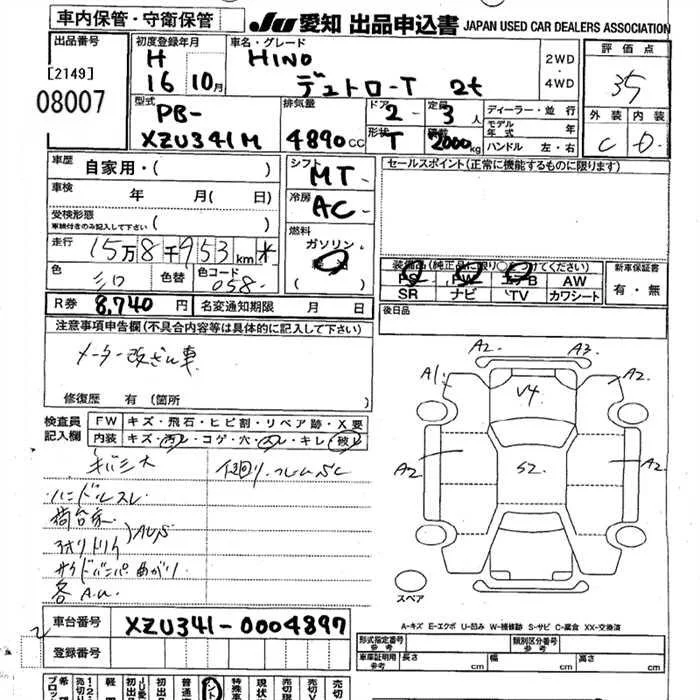 車内保管・守衛保管
JU 愛知 出品申込書 JAPAN USED CAR DEALERS ASSOCIATION
出品番号
[2149]
08007
初度登録年月
H
16 10月
車名・グレード
HINO
デュトロ-T 2t
2WD
・
4WD
評価点
35
型式
PB-
XZU341M
排気量
4890cc
ドア
2-
定員
3人
形状
T
積載
2000kg
ディーラー・並行
モデル年式 年
ハンドル 左・右
外装 内装
C D
車歴
自家用・( )
車検
年 月( 日)
受検形態
車検付きのみ記入して下さい
( )
走行
15万8千953km *
色
シロ
色替
色コード
058-
シフト
MT-
冷房
AC-
燃料
ガソリン
軽油
( )
セールスポイント(正常に機能するものに限ります)
装備品(純正品に限り○をつけてください)
PS PW エアB AW
SR ナビ TV カワシート
新車保証書
有・無
R券 8,740円
名変通知期限 月 日
後日品
注意事項申告欄(不具合内容等は具体的に記入して下さい)
メーター改ざん車
修復歴 有(箇所
検査員
記入欄
FW キズ・飛石・ヒビ割・リペア跡・X要
内装 キズ・汚れ・コゲ・穴・スレ・キレ・破れ
ハンドルスレ
荷台床
アオリトリイ
AUS
サイドバンパ曲がり
各A.U.
A2 A3
A1 A2
V4
A2 S2 A2
スペア
A-キズ E-エクボ U-凹み W-補修跡 S-サビ C-腐食 XX-交換済
車台番号
XZU341-0004897
登録番号
形式指定番号
参考
類別区分番号
参考
車庫証明用
参考
長さ cm
幅 cm
高さ cm